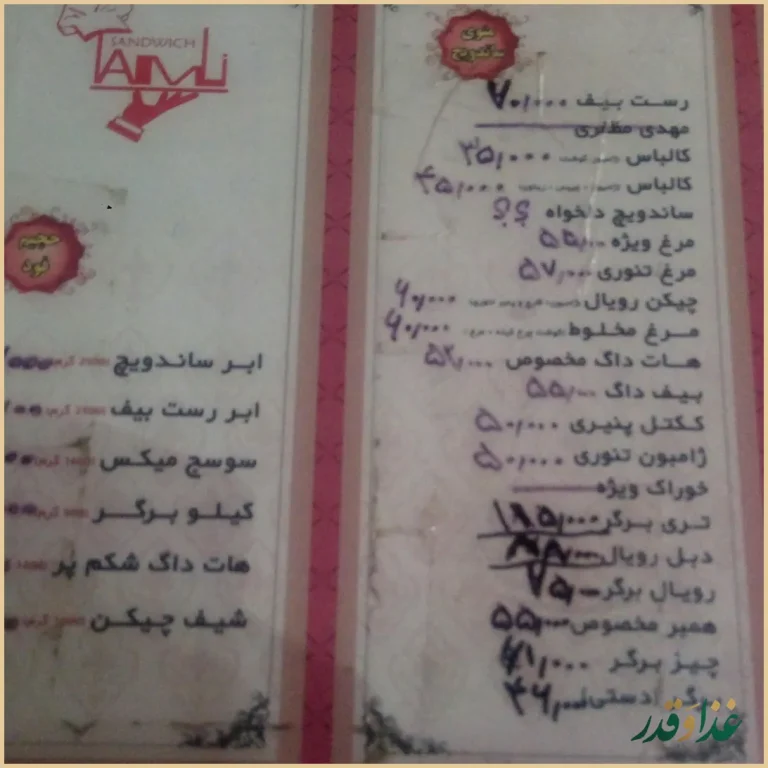 منوی
ساندویچ
رست بیف ۷۰,۰۰۰
مهدی مظفری
کالباس ۳۵,۰۰۰
کالباس ۴۵,۰۰۰
ساندویچ دلخواه ؟؟
مرغ ویژه ۵۵,۰۰۰
مرغ تنوری ۵۷,۰۰۰
چیکن رویال ۶۰,۰۰۰
مرغ مخلوط ۶۰,۰۰۰
هات داگ مخصوص ۵۲,۰۰۰
بیف داگ ۵۵,۰۰۰
ککتل پنیری ۵۰,۰۰۰
ژامبون تنوری ۵۰,۰۰۰
خوراک ویژه
تری برگر ۱۸۵,۰۰۰
دبل رویال
رویال برگر ۷۵,۰۰۰
همبر مخصوص ۵۵,۰۰۰
چیز برگر ۶۱,۰۰۰
برگر دستی ۴۶,۰۰۰
SANDWICH
حجیم
فود
ابر ساندویچ
ابر رست بیف
سوسج میکس
کیلو برگر
هات داگ شکم پر
شیف چیکن
غذا و قدر